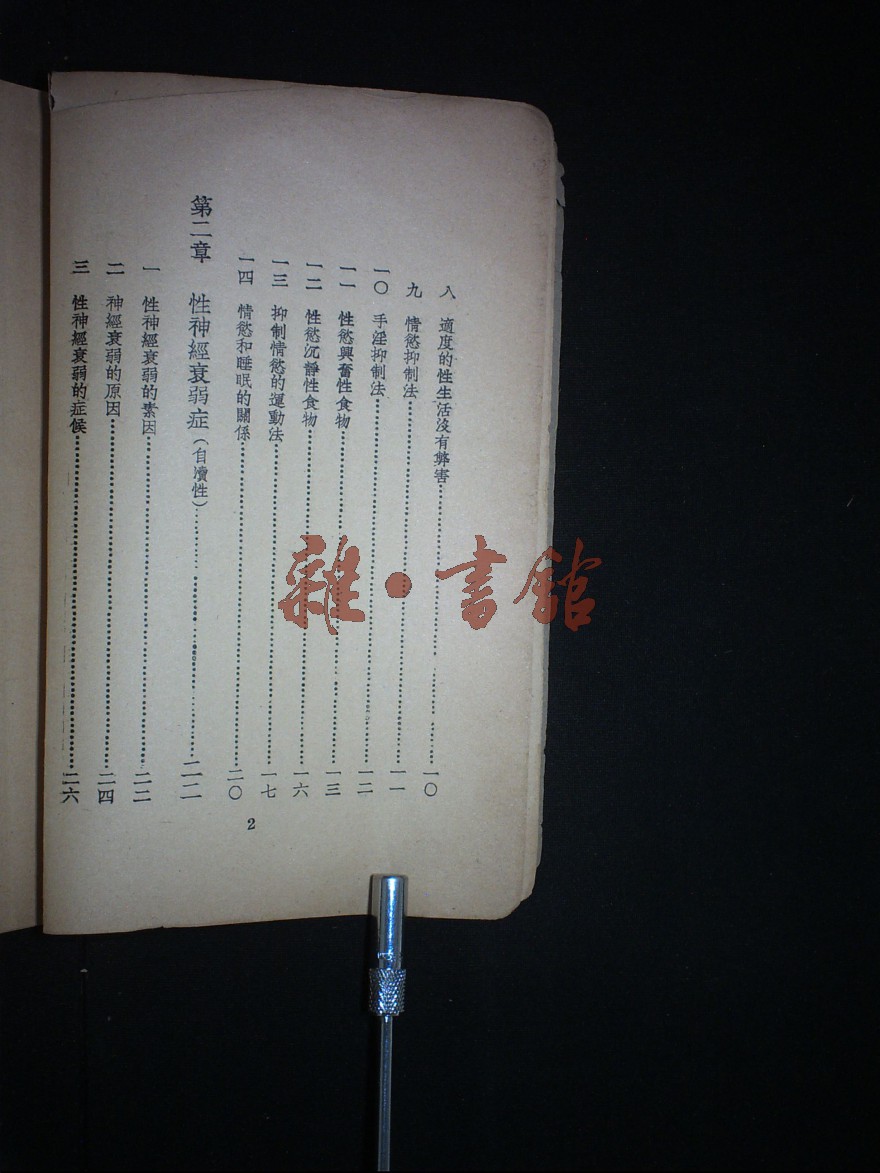 八　適度的性生活沒有弊害……一〇
九　情慾抑制法……一一
一〇　手淫抑制法……一二
一一　性慾興奮性食物……一三
一二　性慾沉靜性食物……一六
一三　抑制情慾的運動法……一七
一四　情慾和睡眠的關係……二〇
第二章　性神經衰弱症（自瀆性）……二二
一　性神經衰弱的素因……二二
二　神經衰弱的原因……二四
三　性神經衰弱的症候……二六
2
雜·書館